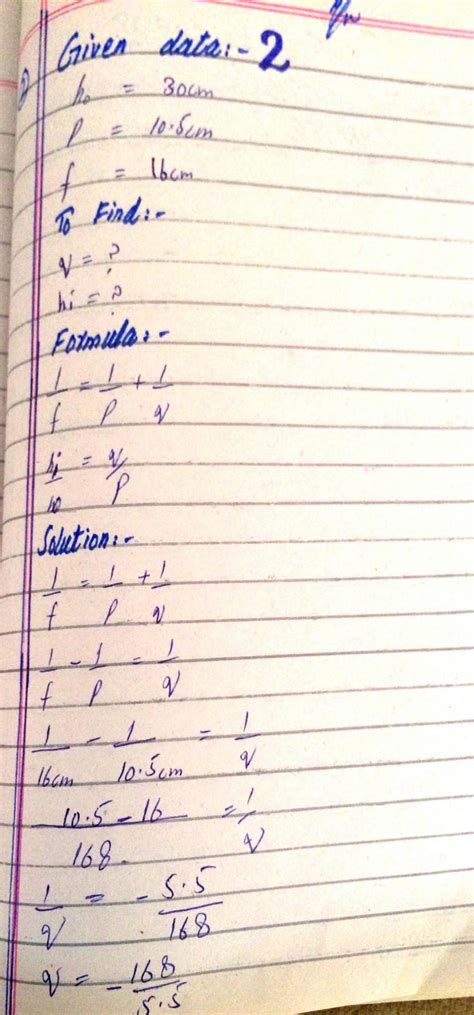 Given data:- 2
ho = 30cm
P = 10.5cm
f = 16cm
To Find:-
q = ?
hi = ?
Formula:-
1/f = 1/P + 1/q
hi/ho = q/P
Solution:-
1/f = 1/P + 1/q
1/f - 1/P = 1/q
1/16cm - 1/10.5cm = 1/q
10.5 - 16/168 = 1/q
1/q = - 5.5/168
q = - 168/5.5